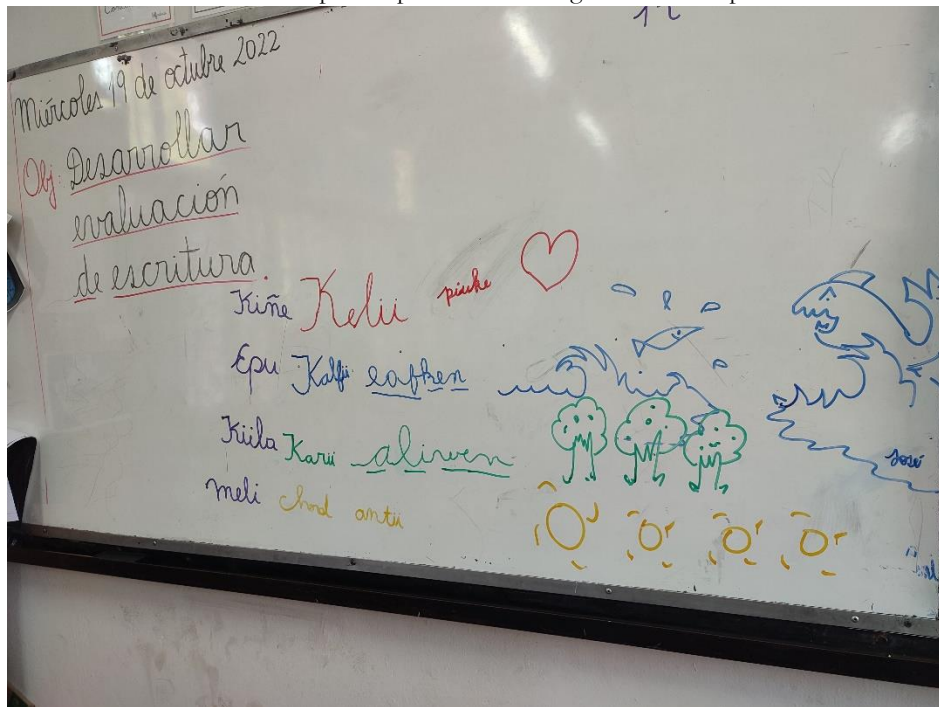 Miércoles 19 de octubre 2022
Obj: Desarrollar
evaluación
de escritura.
Kiñe Kelü piuke
Epu Kalfü lafken
Küla Karü aliwen
meli chod antü
José